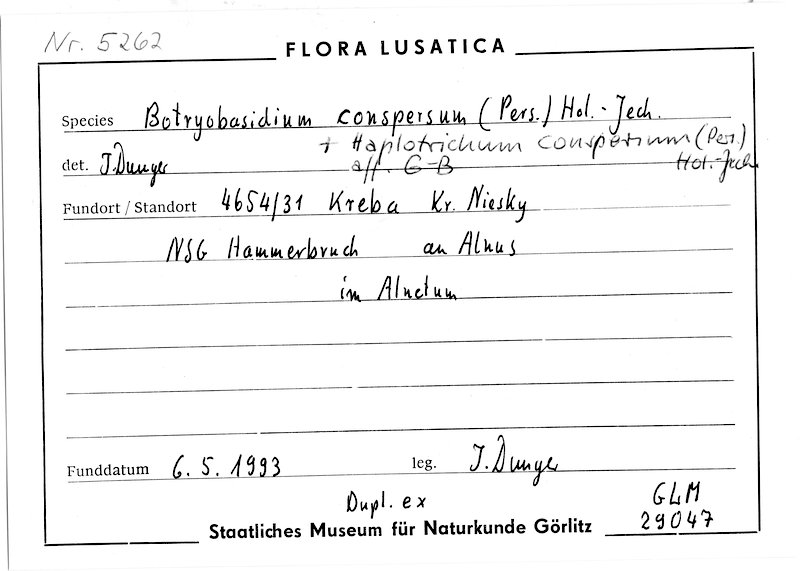 Nr. 5262
FLORA LUSATICA
Species Botryobasidium conspersum (Pers.) Hol.-Jech.
+ Haplotrichum conspersum (Per.)
det. I. Dunger aff. G-B Hol.-Jech
Fundort / Standort 4654/31 Kreba Kr. Niesky
NSG Hammerbruch an Alnus
im Alnetum
Funddatum 6. 5. 1993 leg. I. Dunger
Dupl. ex GLM
Staatliches Museum für Naturkunde Görlitz 29047